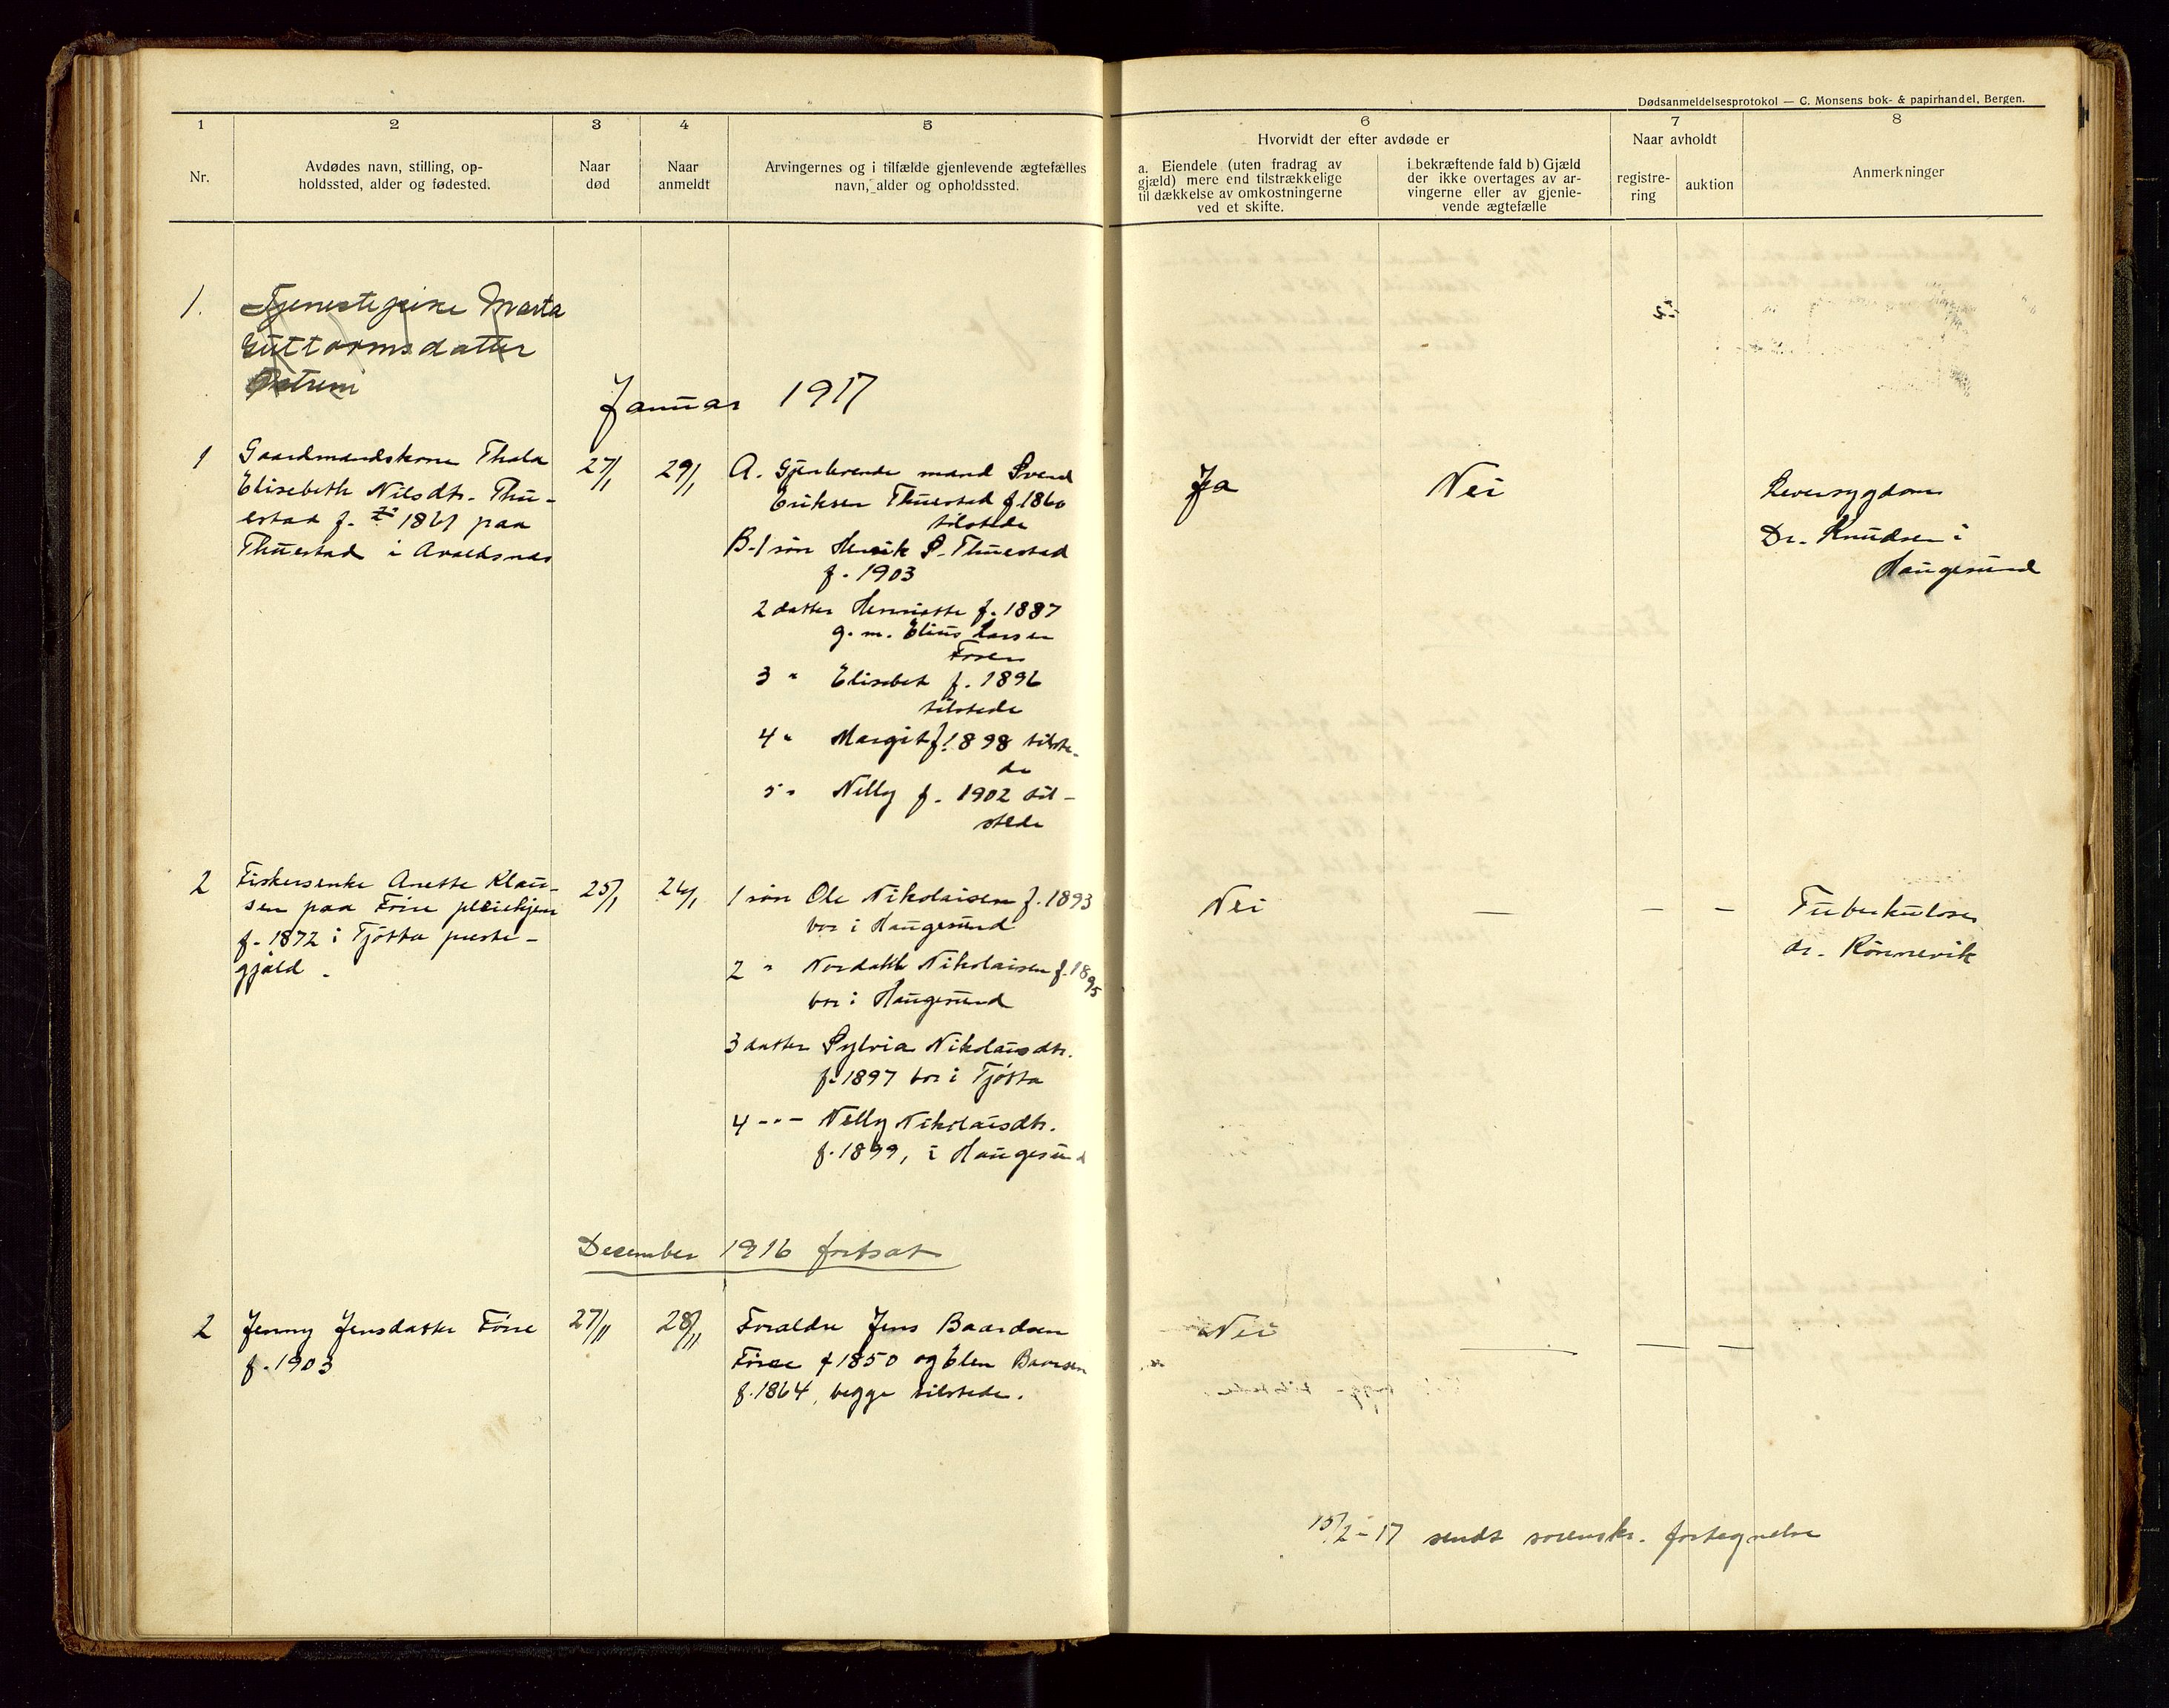 Dødsanmeldelsesprotokol — C. Monsens bok- & papirhandel, Bergen.
1
2
3
4
5
6
7
8
Nr.
Avdødes navn, stilling, op-
holdssted, alder og fødested.
Naar
død
Naar
anmeldt
Arvingernes og i tilfælde gjenlevende ægtefælles
navn, alder og opholdssted.
Hvorvidt der efter avdøde er
a. Eiendele (uten fradrag av
gjæld) mere end tilstrækkelige
til dækkelse av omkostningerne
ved et skifte.
i bekræftende fald b) Gjæld
der ikke overtages av ar-
vingerne eller av gjenle-
vende ægtefælle
Naar avholdt
registre-
ring
auktion
Anmerkninger
1. Tjenestepike Marta
Guttormsdatter
Januar 1917
1 Gaardmandskone Thala
Elisebeth Nilsdtr. Thu-
estad f. 1861 paa
Thuestad i Avaldsnes
27/1
29/1
A. Gjenlevende mand Svend
Eriksen Thuestad f. 1860
tilstede
B. 1 søn Henrik S. Thuestad
f. 1903
2 datter Henriette f. 1887
g. m. Elius Larsen
Fosen
3 " Elisebet f. 1896
tilstede
4 " Margit f. 1898 tilste-
de
5 " Nelly f. 1902 til-
stede
Ja
Nei
Leversygdom
Dr. Knudsen i
Haugesund
2 Fiskerenke Anette Klau-
sen paa Förre pleiehjem
f. 1872 i Tjötta preste-
gjæld.
25/1
26/1
1 søn Ole Nikolaisen f. 1893
bor i Haugesund
2 " Nordahl Nikolaisen f. 1895
bor i Haugesund
3 datter Sylvia Nikolaisdtr.
f. 1897 bor i Tjötta
4 -"- Nelly Nikolaisdtr.
f. 1899, i Haugesund
Nei
—
—
—
Tuberkulose
dr. Rönnevik
December 1916 fortsat
2 Jenny Jensdatter Förre
f. 1903
27/11
28/11
Foraldre Jens Baardsen
Förre f 1850 og Elen
f. 1864, begge tilstede.
Nei
—
—
—
15/2-17 sendt sorenskr. fortegnelse